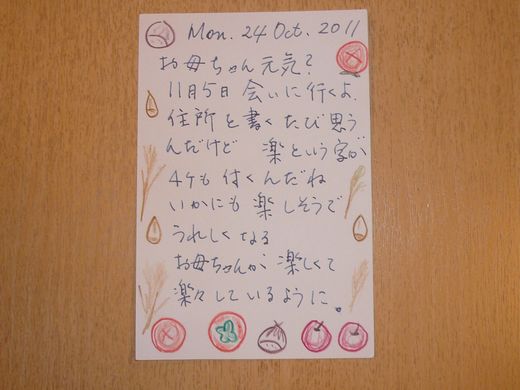 Mon. 24 Oct. 2011
お母ちゃん元気?
11月5日 会いに行くよ.
住所を書くたび思う
んだけど 楽という字が
4ケも付くんだね
いかにも楽しそうで
うれしくなる
お母ちゃんが楽しくて
楽々しているように。